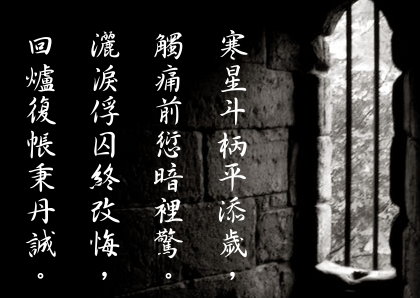 寒星斗柄平添歲，
觸痛前愆暗裡驚。
灑淚俘囚終改悔，
回爐復帳秉丹誠。